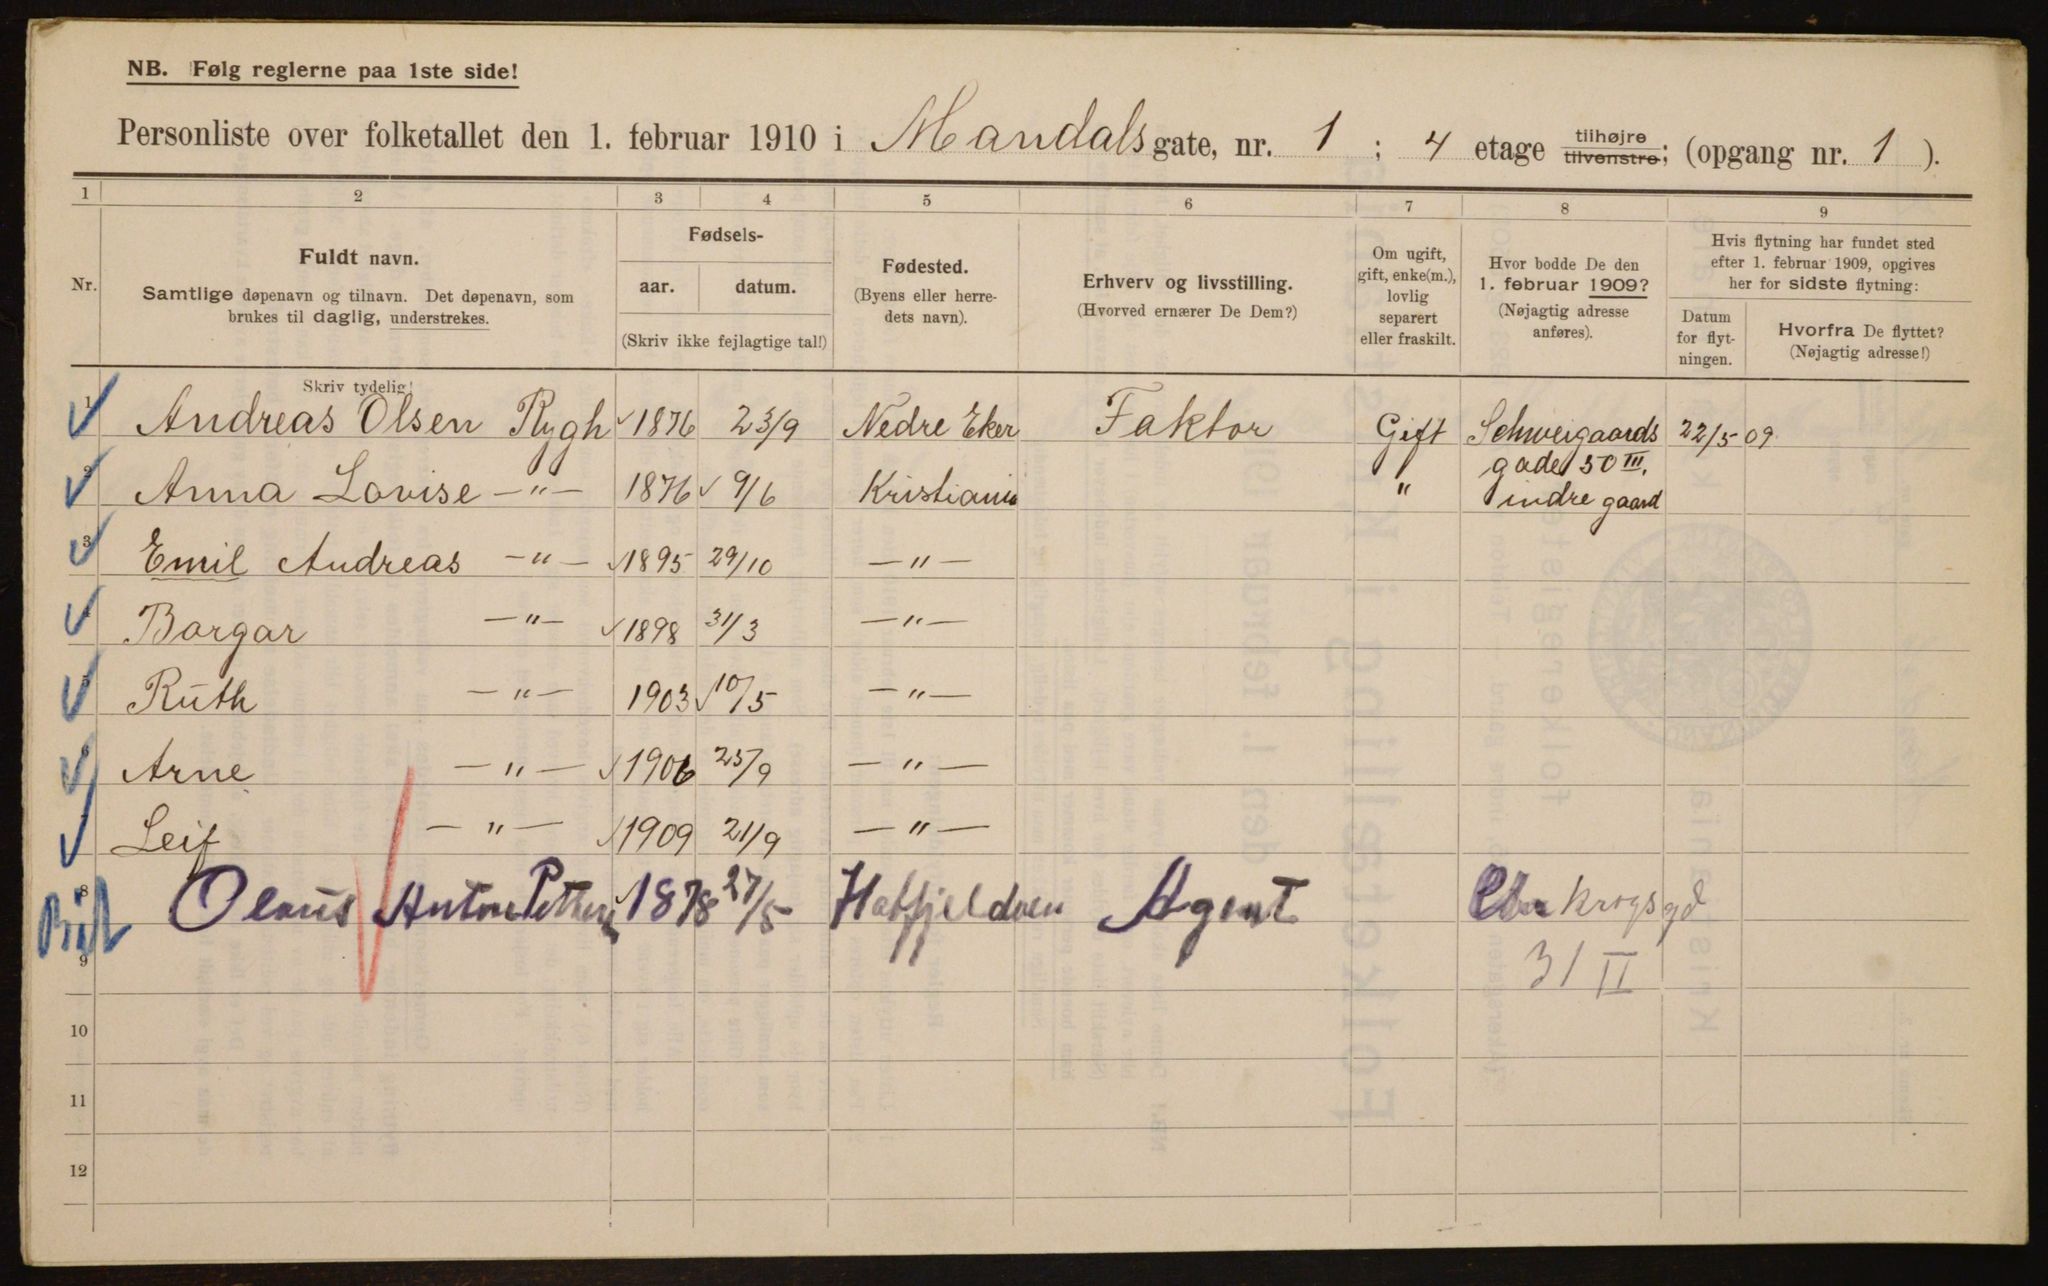 NB. Følg reglerne paa 1ste side!
Personliste over folketallet den 1. februar 1910 i Mandals gate, nr. 1 ; 4 etage tilhøjre tilvenstre; (opgang nr. 1 ).
1 2 3 4 5 6 7 8 9
Nr.
Fuldt navn.
Samtlige døpenavn og tilnavn. Det døpenavn, som
brukes til daglig, understrekes.
Fødsels-
aar. datum.
(Skriv ikke fejlagtige tal!)
Fødested.
(Byens eller herre-
dets navn).
Erhverv og livsstilling.
(Hvorved ernærer De Dem?)
Om ugift,
gift, enke(m.),
lovlig
separert
eller fraskilt.
Hvor bodde De den
1. februar 1909?
(Nøjagtig adresse
anføres).
Hvis flytning har fundet sted
efter 1. februar 1909, opgives
her for sidste flytning:
Datum
for flyt-
ningen.
Hvorfra De flyttet?
(Nøjagtig adresse!)
Skriv tydelig!
1 Andreas Olsen Rygh 1876 23/9 Nedre Eker Faktor Gift Schweigaards 22/5 09
gade 50 III,
2 Anna Lovise —"— 1876 9/6 Kristiania " indre gaard
3 Emil Andreas —"— 1895 29/10 —"—
4 Borgar —"— 1898 31/3 —"—
5 Ruth —"— 1903 10/5 —"—
6 Arne —"— 1906 25/9 —"—
Leif —"— 1909 21/9 —"—
8 Olaus Anton 1878 27/5 Hatfjeldalen Agent krogsgd
9 31 II
10
11
12